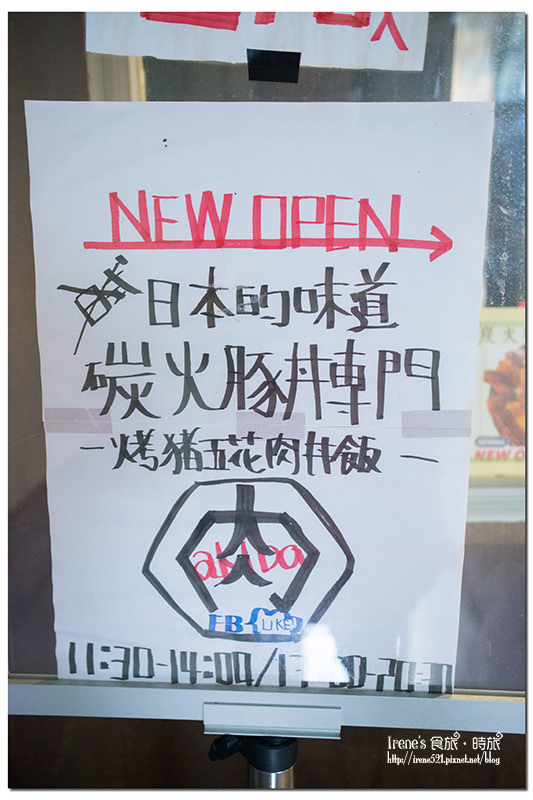 NEW OPEN
日本的味道
碳火豚丼專門
-烤豬五花肉丼飯-
肉
akiba
FB{LIKE}
11:30-14:00/17:00-20:30
NEW O
Irene's 食旅・時旅
http://irene521.pixnet.net/blog